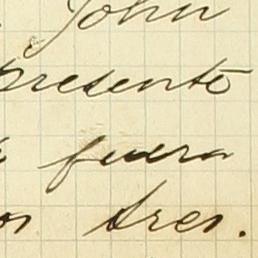 John
presentó
fuera
os tres.